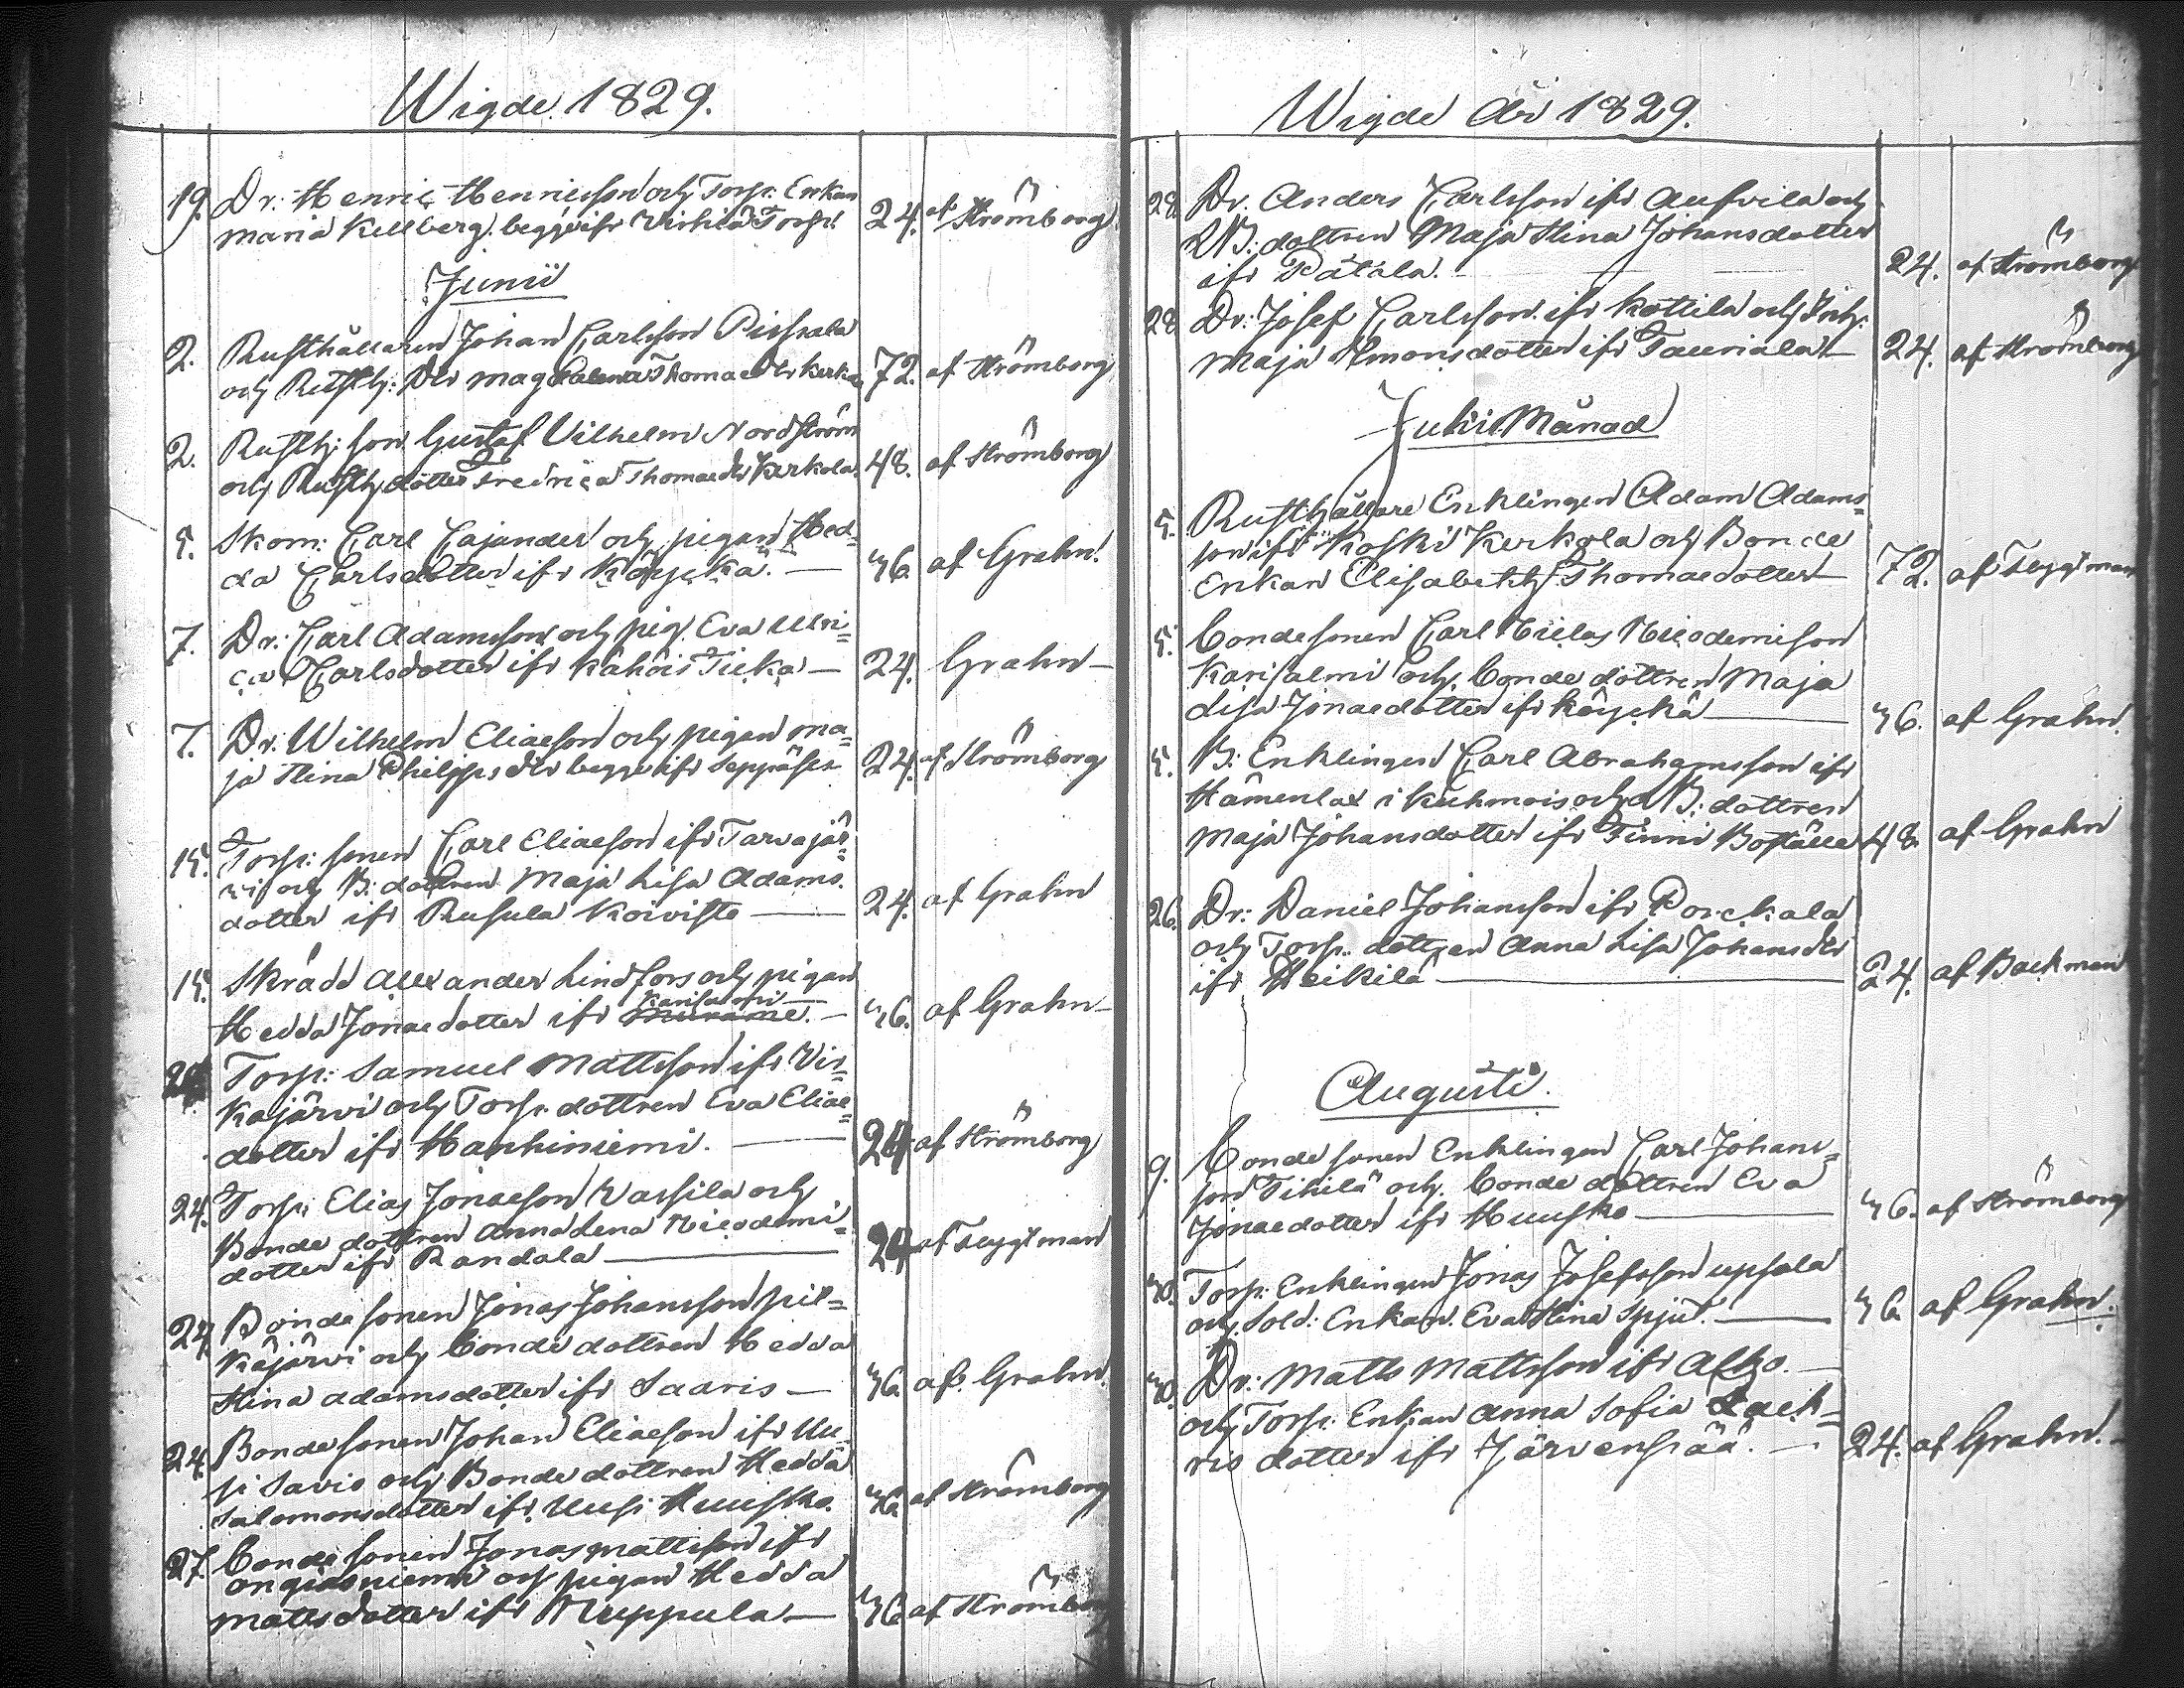 Wigde 1829.
19. Dr: Henric Henricsson och Torp: Enkan
Maria Kellberg begge ifr Virkila Torp! 24. af Strömborg
Junii
2. Rusthållaren Johan Carlsson Pispala
och Rusth: Dtr Magdalena Thomae Dtr Kerko 72. af Strömborg
2. Rusth: son Gustaf Vilhelm Nordström
och Rusth dotter Fredrica Thomaedtr Kerkola 48. af Strömborg
5. Skom: Carl Cajander och pigan Hed-
da Carlsdotter ifr Köyckä. — 36. af Grahn.
7. Dr: Carl Adamsson och pig. Eva Ulri=
ca Carlsdotter ifr Kähöis Tieka — 24. Grahn —
7. Dr. Wilhelm Eliaeson och pigan Ma=
ja Stina Philpps dtr begge ifr Seppäles 24. af Strömborg
15. Torp: sonen Carl Eliaeson ifr Tarvajär=
vi och B: dottren Maja Lisa Adams.
dotter ifr Rusula Koivisto — 24. af Grahn
15. Skrädd Alexander Lindfors och pigan
Karisalmi
Hedda Jonaedotter ifr — 36. af Grahn —
24 Torp: Samuel Mattsson ifr Vir=
kajärvi och Torp. dottren Eva Eliae=
dotter ifr Hankiniemi. — 24 af Strömborg
24. Torp: Elias Jonaeson Vassila och
Bonde dottren Anna Lena Nicodemi=
dotter ifr Randala — 24 af Teggtman
24 Bonde sonen Jonas Johansson Pil=
käjärvi och bonde dottren Hedda
Stina Adamsdotter ifr Saaris — 36. af Grahn.
24. Bonde sonen Johan Eliaeson ifr Uu-
si Savio och Bonde dottren Hedda
Salomonsdotter ifr. Uusi Huusko. 36. af Strömborg
27. Bonde sonen Jonas Mattsson ifr
Angiasniemi och pigan Hedda
Mattsdotter ifr Nuppula — 36 af Strömborg
Wigde år 1829.
28. Dr. Anders Carlsson ifr Aufvila och
B: dottren Maja Stina Johansdotter
ifr Pätälä. — 24. af Strömborg
28 Dr: Josef Carlsson ifr Kottila och Inh:
Maja Simonsdotter ifr Tauriala — 24. af Strömborg
Julii Månad
5. Rusthållare Enklingen Adam Adams=
son ifr Koski Kerkola och Bonde
Enkan Elisabeth Thomaedotter — 72. af Teggtman
5. Bondesonen Carl Niclas Nicodemison
Karisalmi och bonde dottren Maja
Lisa Jonaedotter ifr Köyckä — 36. af Grahn.
5. B: Enklingen Carl Abrahamsson ifr
Hämenlax i Kuhmois och B: dottren
Maja Johansdotter ifr Finni Boställe 48. af Grahn
26. Dr: Daniel Johansson ifr Porckala
och Torp. dottren Anna Lisa Johansdtr
ifr Heikilä — 24. af Backman
Augusti.
9. Bonde sonen Enklingen Carl Johans=
son Tikilä och bonde dottren Eva
Jonaedotter ifr Huusko — 36. af Strömborg
30. Torp: Enklingen Jonas Josefsson Upsala
och Sold: Enkan. Eva Stina Spjut. — 36 af Grahn.
30. Dr: Matts Mattsson ifr Asko. —
och Torp: Enkan Anna Sofia Zach=
ris dotter ifr Järvenpää. — 24. af Grahn. —